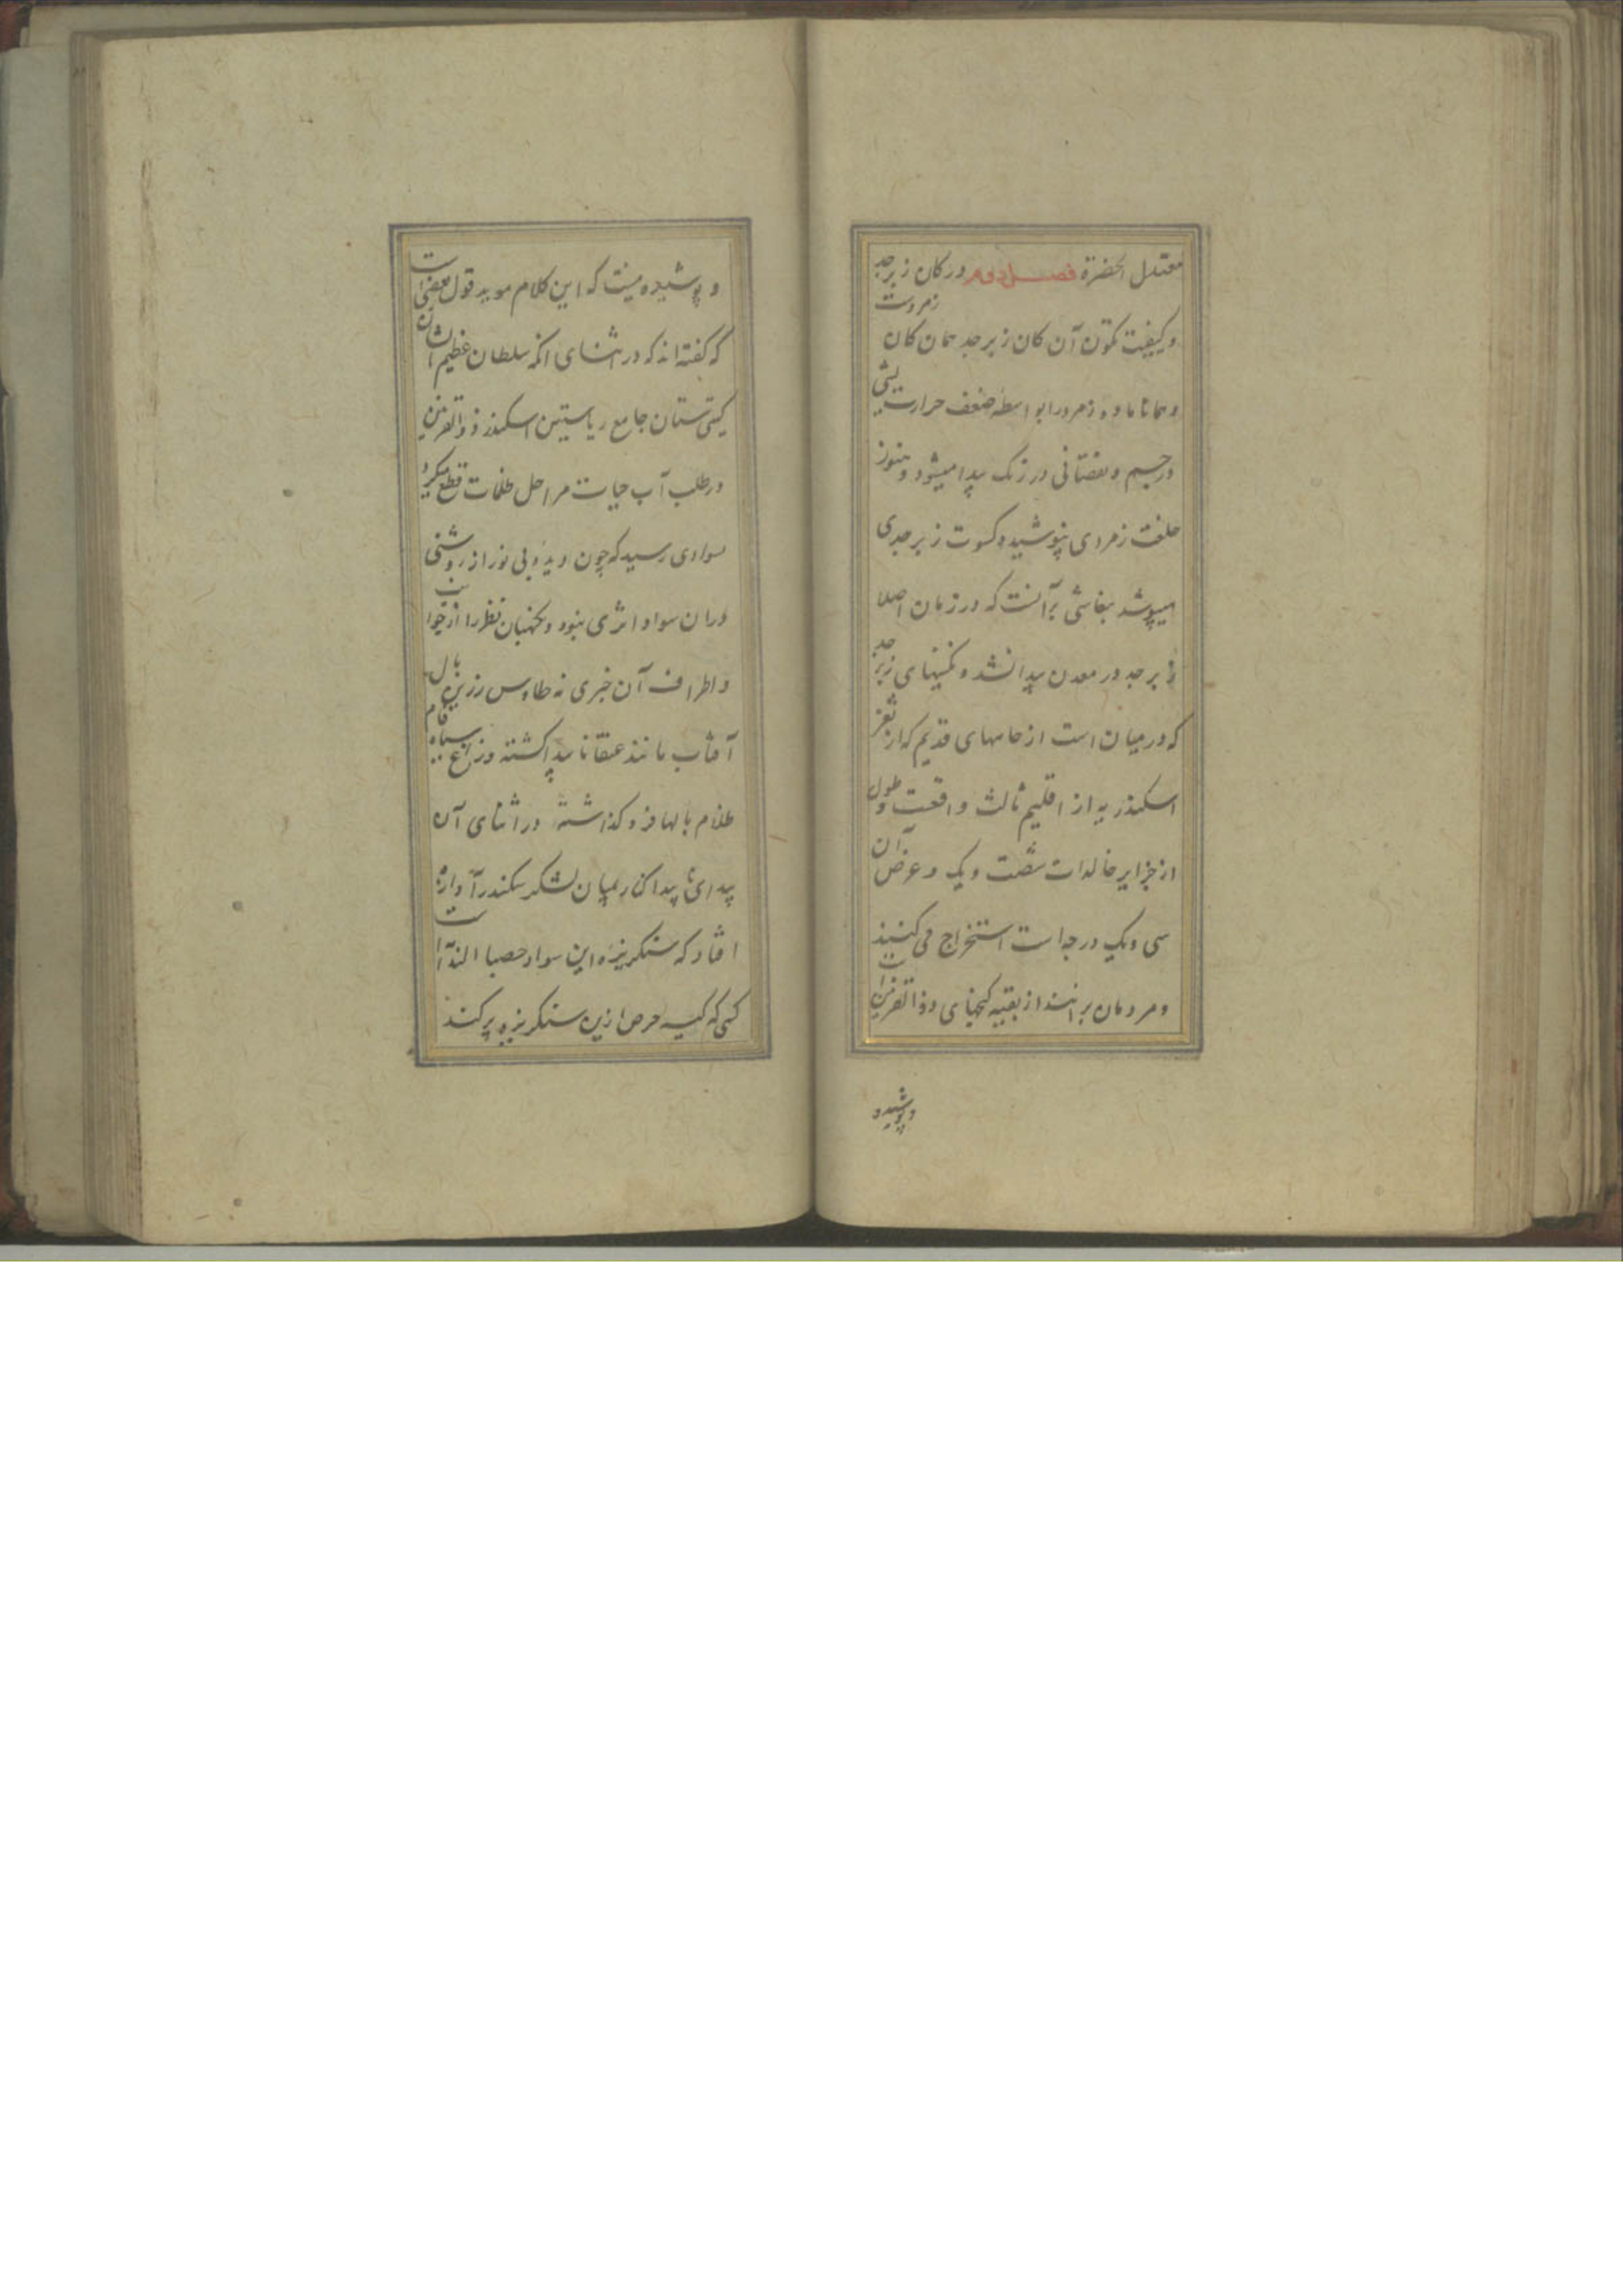 معتدل الخضرة فصل دوم در کان زبرجد
و کیفیت تکون آن کان زبرجد همان کان زمردست
و همانا ماده زمرد را بواسطه ضعف حرارت
در جسم و نقصانی در رنک پیدا میشود و هنوز
خلعت زمردی نپوشیده کسوت زبرجدی
میپوشد آنست که در زمان اصلا
زبرجد در معدن پیدا نشد و نکینهای زبرجد
که در میان است از قدیم که از ثغر
اسکندریه از اقلیم ثالث واقعست و طول
از جزایر خالدات شصت و یک و عرض آن
سی و یک درجه است استخراج می کنند
و مردمان برانند از بقیه کنجهای ذوالقرنین است
و پوشیده
و پوشیده نیست که این کلام موید قول بعضی است
که کفته اند که در اثنای انکه سلطان عظیم الشان
کیتی ستان جامع ریاستین اسکندر ذوالقرنین
در طلب آب حیات مراحل ظلمات قطع میکرد
بسوادی رسید که چون دیده بی نور از روشنی
دران سواد اثری نبود و نکهبان نظر را از خواب
و اطراف آن خبری نه طاوس زرین بال
آفتاب مانند عنقا ناپیدا کشته و زاغ سیاه فام
ظلام بالها فرو کذاشته در اثنای آن
پیدای ناپیدا کنار میان لشکر سکندر آوازه
افتاد که سنکریزه این سواد حصبا الندآ است
کسی که کیسه حرص ازین سنکریزه پر کند